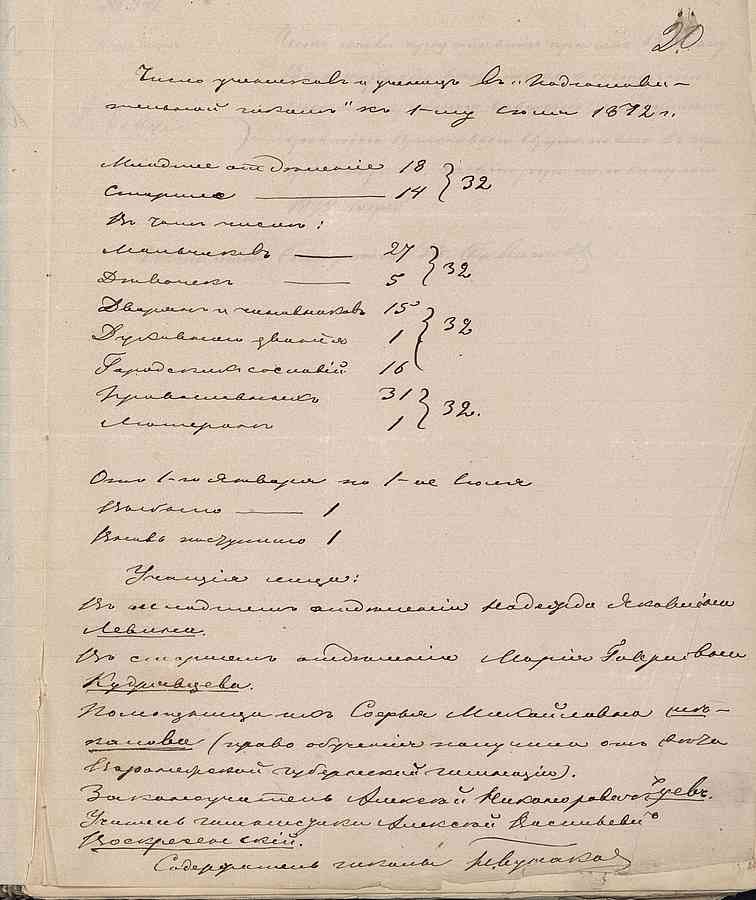 20.
Число учениковъ и ученицъ въ "Подготови-
тельной школѣ" къ 1-му Іюля 1872 г.
Младшее отдѣленіе 18
Старшее — 14 } 32
Въ томъ числѣ:
Мальчиковъ — 27
Дѣвочекъ — 5 } 32
Дворянъ и чиновниковъ 15
Духовнаго званія 1 } 32
Городскихъ сословій 16
Православныхъ 31
Лютеранъ 1 } 32.
Отъ 1-го Января по 1-ое Іюля
Выбыло — 1
Вновь поступило 1
Учащія лица:
Въ младшемъ отдѣленіи Надежда Яковлевна
Левина.
Въ старшемъ отдѣленіи Марія Гавриловна
Кудрявцева.
Помощница ихъ Софья Михайловна
(право обученія получила отъ
Воронежской губернской гимназіи).
Законоучитель Алексѣй Никаноровичъ
Учитель гимнастики Алексѣй Васильевичъ
Воскресенскій.
Содержатель школы